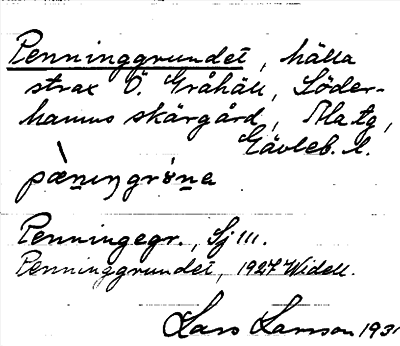 Penninggrundet, hälla
strax Ö. Gråhäll, Söder-
hamns skärgård, Ma tg,
Gävleb. l.
pæ̀niŋgrɵne
Penningegr., Sj 111.
Penninggrundet, 1927 Widell.
Lars Larsson 1931